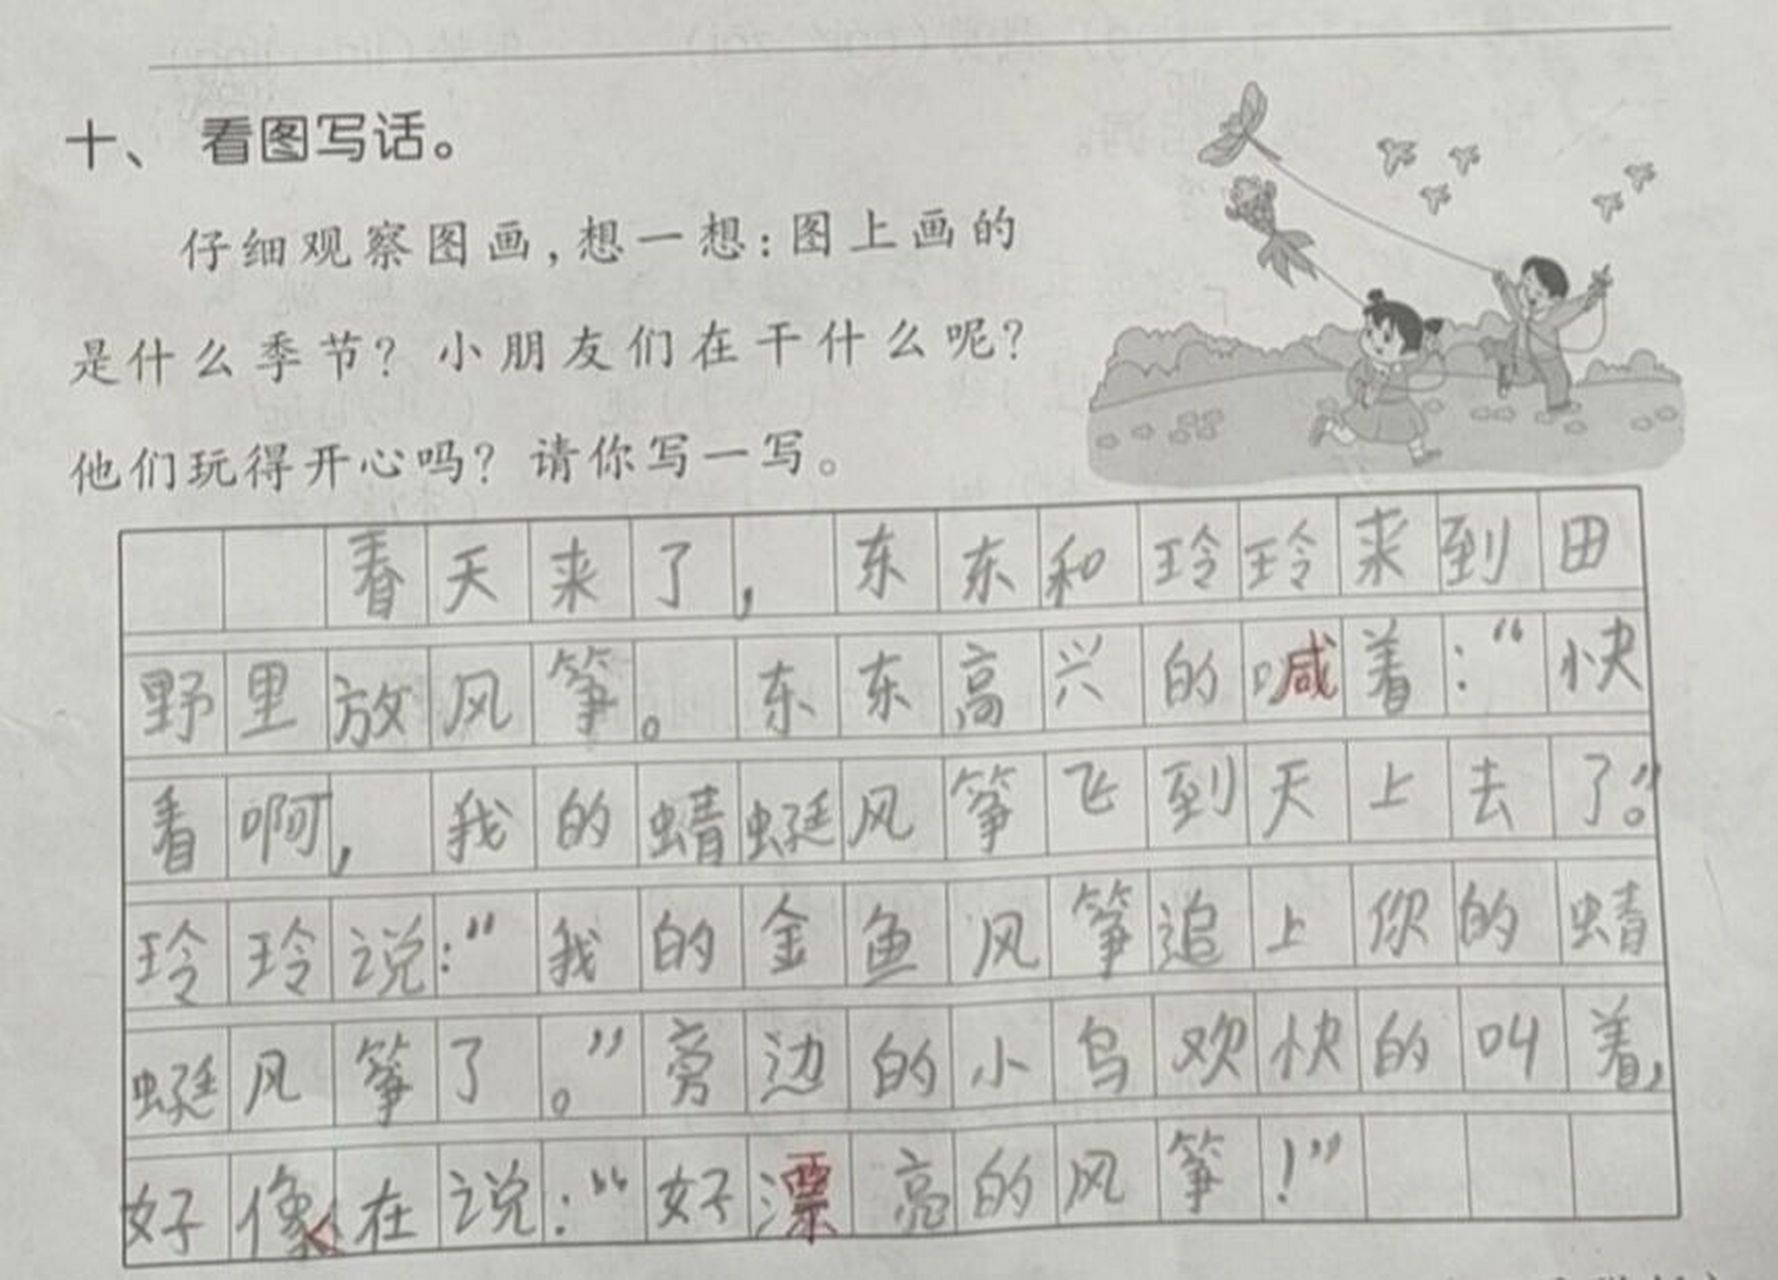 十、 看图写话。
仔细观察图画,想一想:图上画的
是什么季节? 小朋友们在干什么呢?
他们玩得开心吗? 请你写一写。
春天来了，东东和玲玲来到田
野里放风筝。东东高兴的喊着:“快
看啊，我的蜻蜓风筝飞到天上去了。”
玲玲说:“我的金鱼风筝追上你的蜻
蜓风筝了。”旁边的小鸟欢快的叫着，
好像在说:“好漂亮的风筝!”